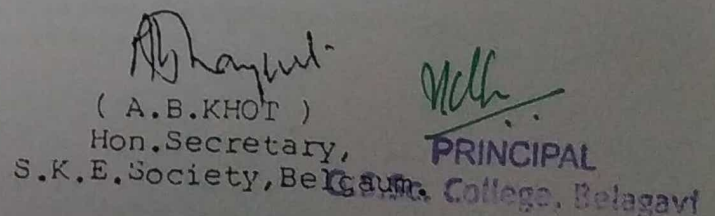 ( A.B.KHOT )
Hon.Secretary,
S.K.E.Society,Belgaum.
PRINCIPAL
College, Belagavi